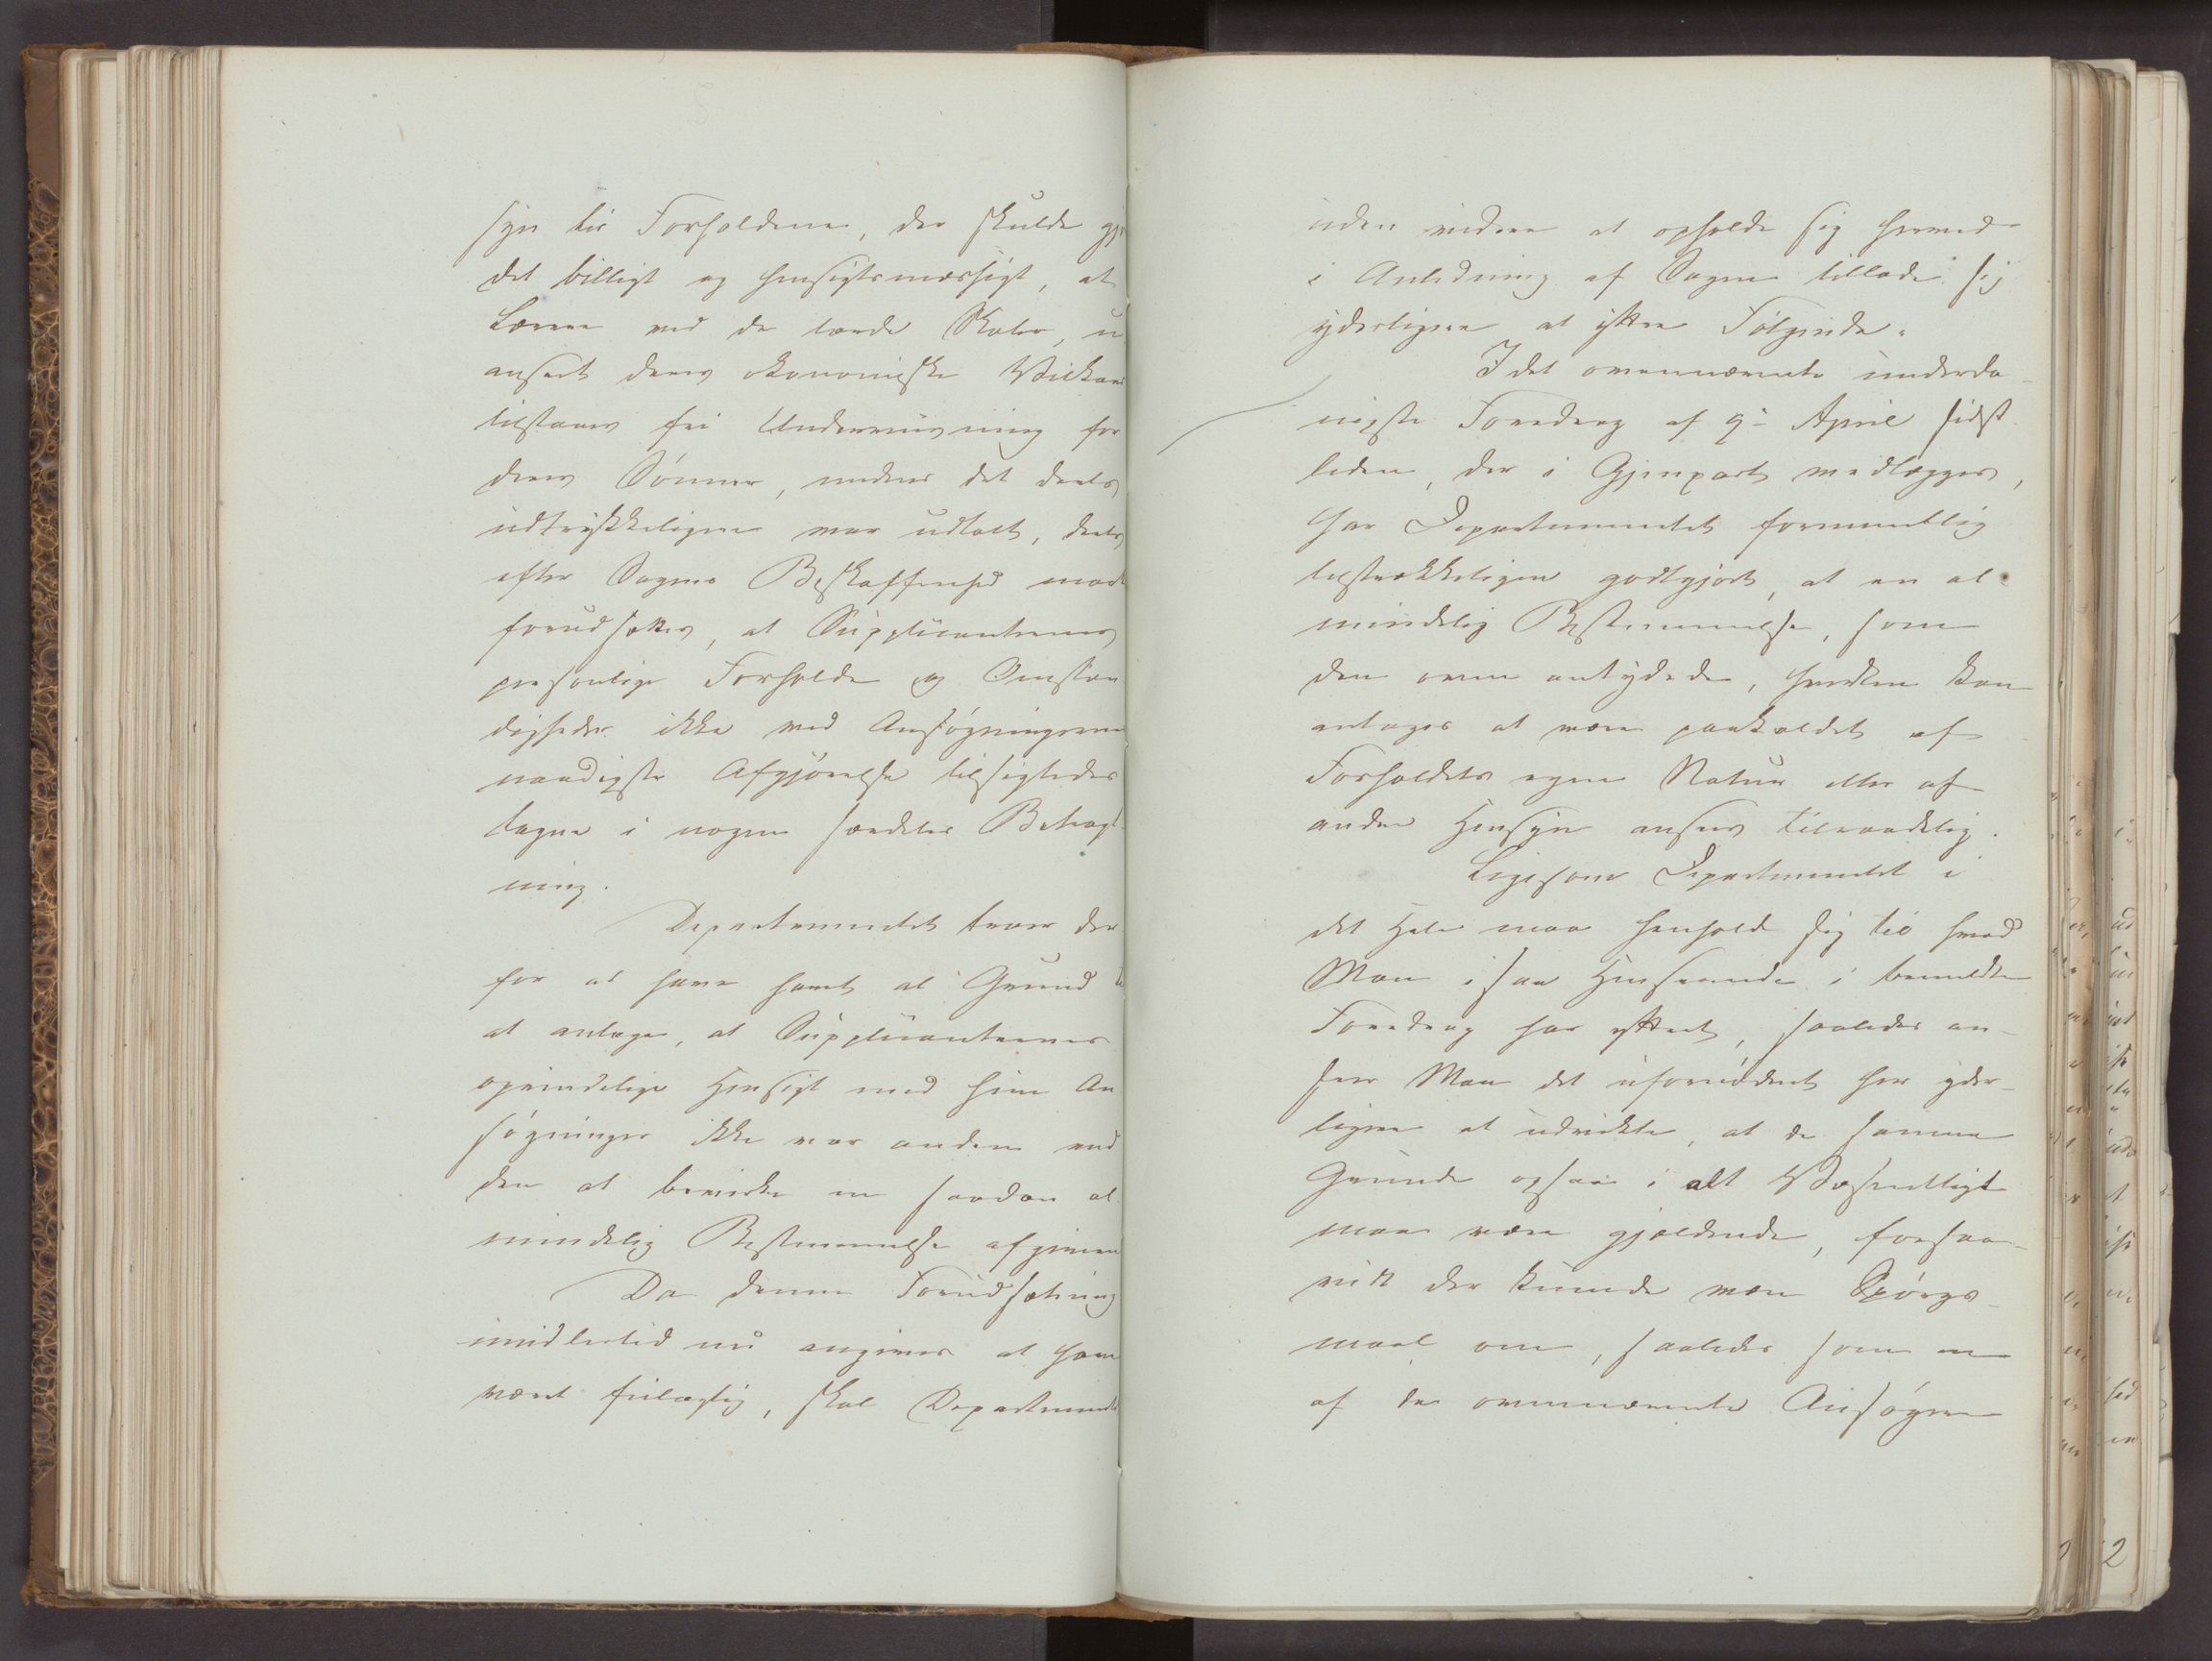 syn til Forholdene, der skulde gjø
det billigt og hensigtsmæssigt, at
Lærere ved de lærde Skoler, u
anseet deres økonomiske Vilkaar
tilstaaes fri Underviisning for
deres Sønner, medens det deels
udtrykkeligen var udtalt, deels
efter Sagens Beskaffenhed maat
forudsættes, at Supplicanternes
personlige Forholde og Omstæn
digheder ikke ved Ansøgningernes
naadigste Afgjørelse tilsigtedes
tagne i nogen særdeles Betragt
ning.
Departementet troer der
for at have havt al Grund t
at antage, at Supplicanternes
oprindelige Hensigt med hine An
søgninger ikke var anden end
den at bevirke en saadan al
mindelig Bestemmelse afgiven
Da denne Forudsætning
imidlertid nu angives at have
været feilagtig, skal Departementet
uden videre at opholde sig herved
i Anledning af Sagen tillade sig
yderligere at yttre Følgende.
I det ovennævnte underda-
nigste Foredrag af 9de April sidst
leden, der i Gjenpart vedlægges,
har Departementet formeentlig
tilstrækkeligen godtgjort, at en al
mindelig Bestemmelse, som
den oven antydede, hverken kan
antages at være paakaldet af
Forholdets egen Natur eller af
andre Hensyn ansees tilraadelig.
Ligesom Departementet i
det Hele maa henholde sig til hvad
Man i saa Henseende i bemeldte
Foredrag har yttret, saaledes an-
seer Man det ufornødent her yder-
ligere at udvikle, at de samme
Grunde ogsaa i alt Væsentligt
maa være gjældende, forsaa-
vidt der kunde være Spørgs-
maal om, saaledes som en
af de ovennævnte Ansøgere
2